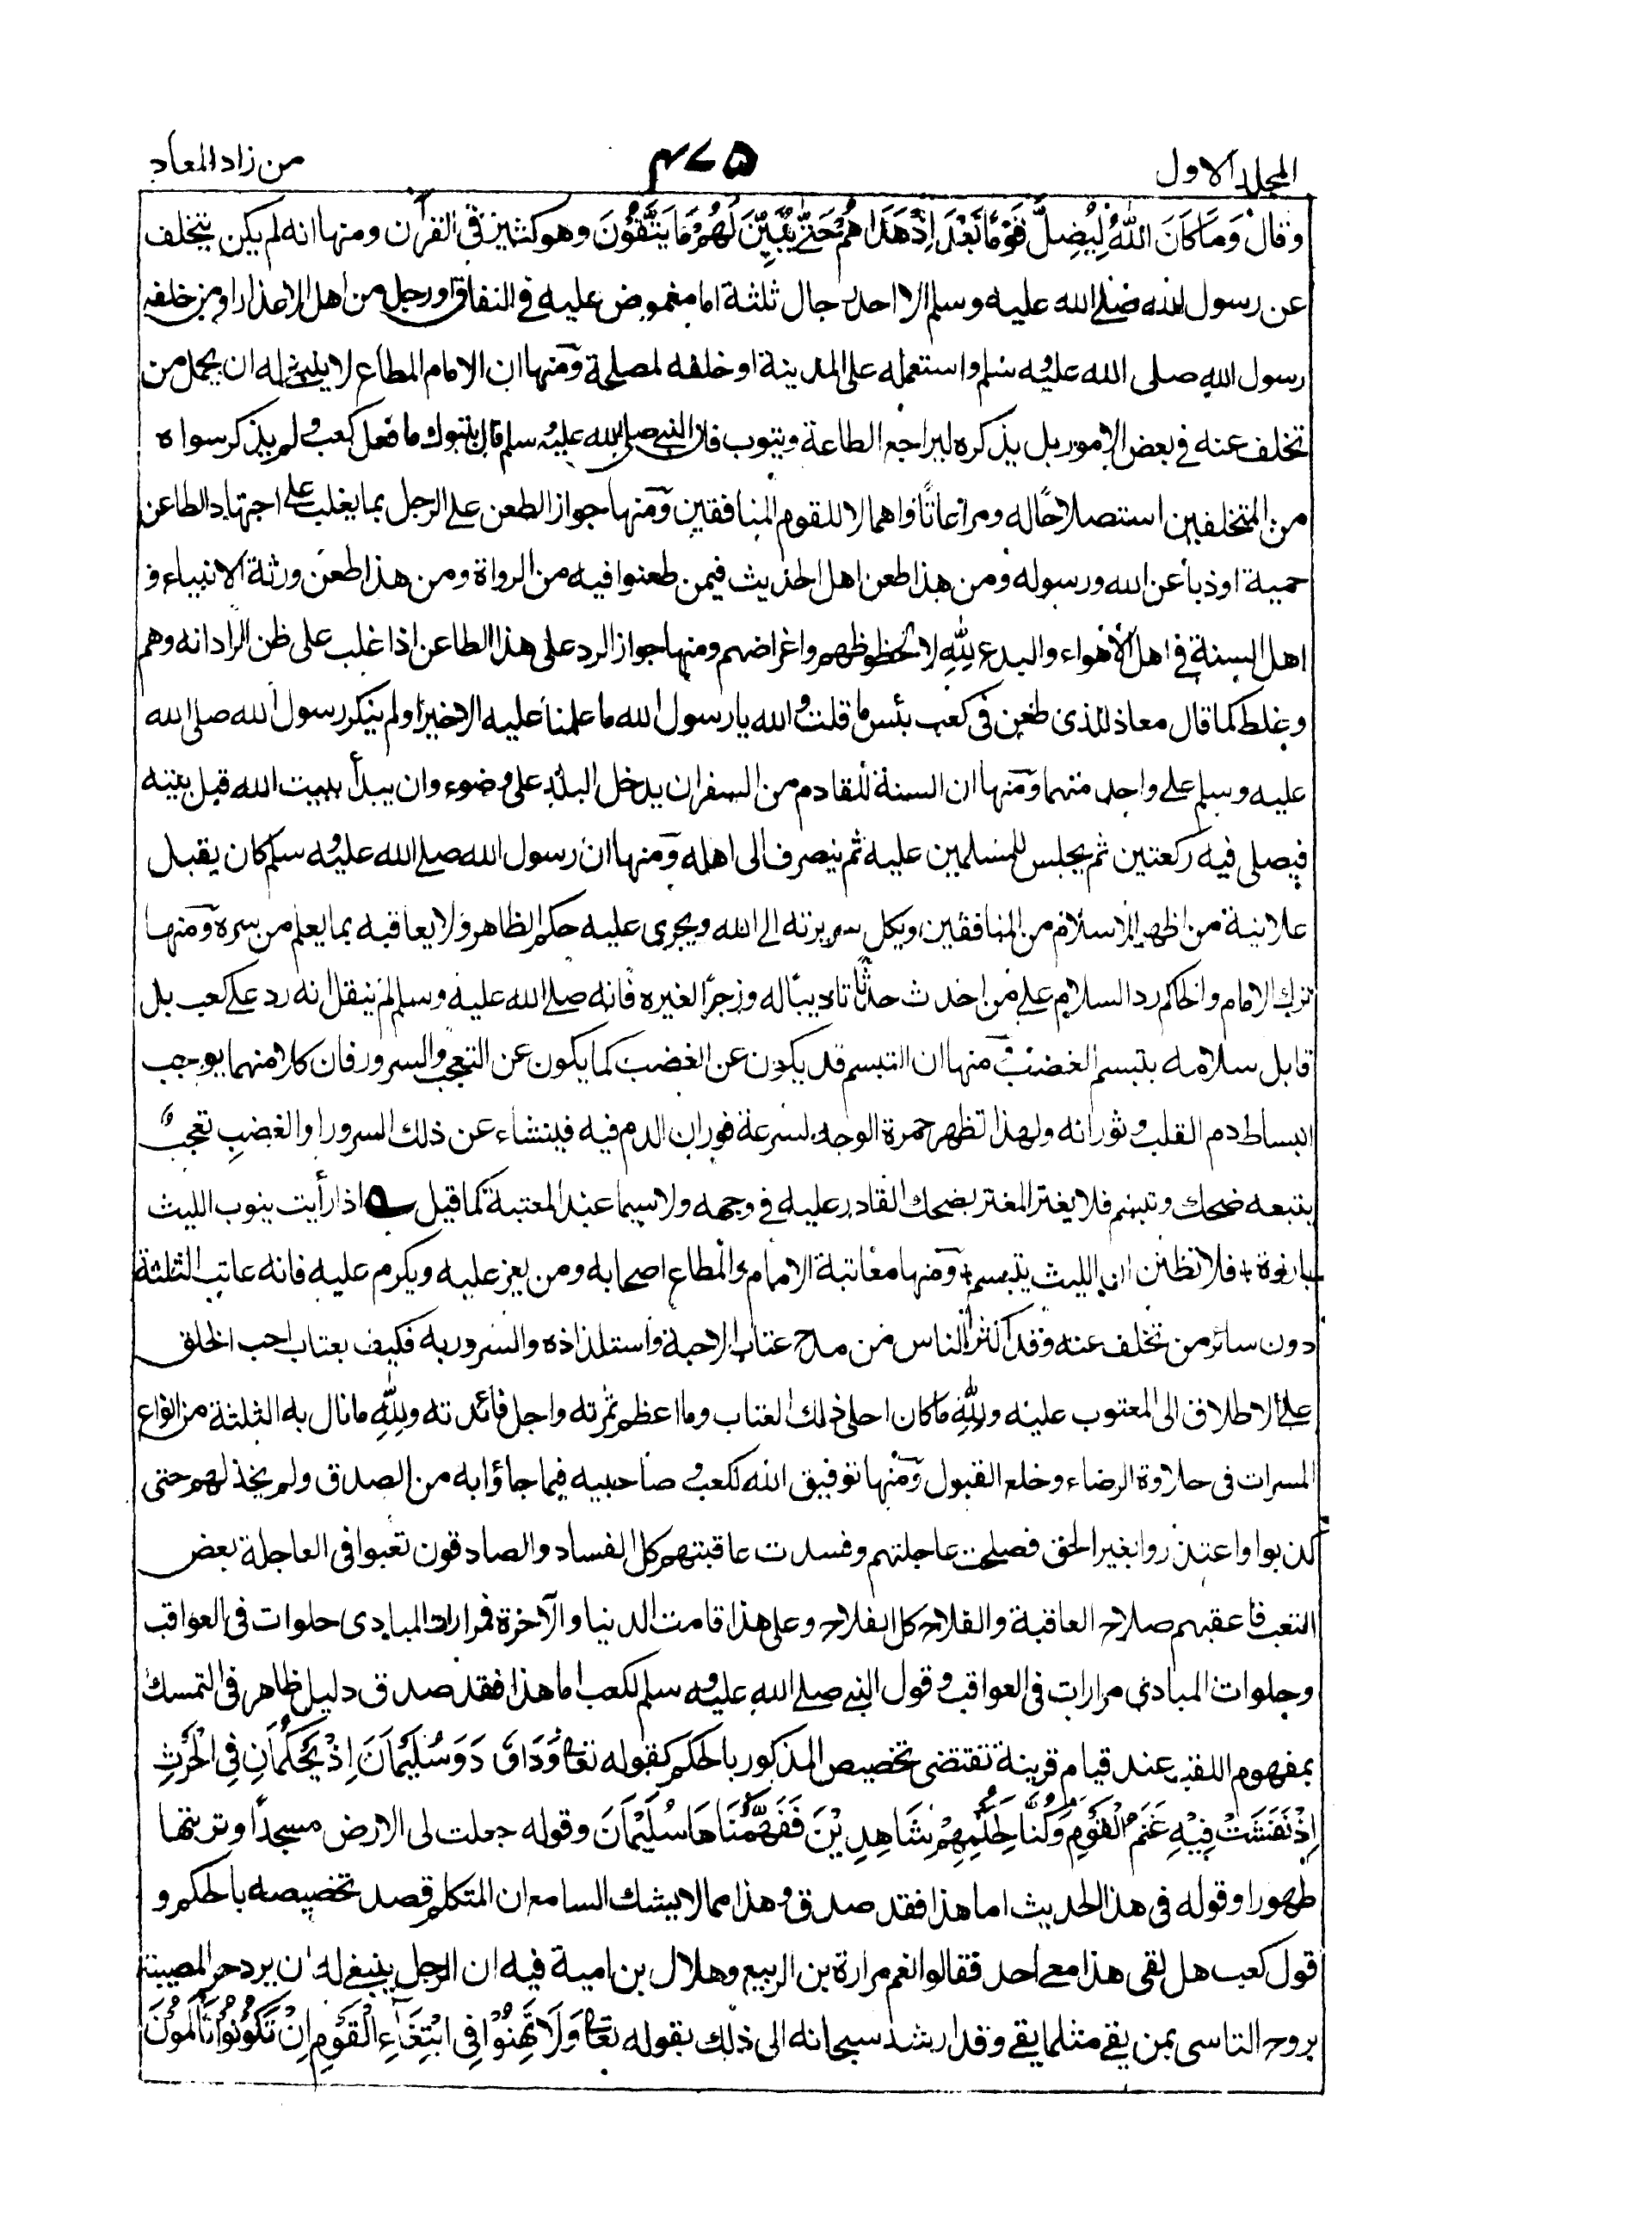 المجلد الاول
۴۷۵
من زاد المعاد
وقال وَمَا كَانَ اللّٰهُ لِيُضِلَّ قَوْمًا بَعْدَ اِذْ هَدَاهُمْ حَتّٰى يُبَيِّنَ لَهُمْ مَا يَتَّقُوْنَ وهو كثير فى القرآن ومنها انه لم يكن يتخلف
عن رسول الله صلى الله عليه وسلم الا احد رجال ثلثة اما مغموص عليه فى النفاق او رجل من اهل الاعذار او من خلفه
رسول الله صلى الله عليه وسلم واستعمله على المدينة او خلفه لمصلحة ومنها ان الامام المطاع لا ينبغى له ان يهمل من
تخلف عنه فى بعض الامور بل يذكره ليراجع الطاعة ويتوب فان النبى صلى الله عليه وسلم قال بتبوك ما فعل كعب ولم يذكر سواه
من المتخلفين استصلاحًا له ومراعاتًا واهمالا للقوم المنافقين ومنها جواز الطعن على الرجل بما يغلب على اجتهاد الطاعن
حمية او ذبا عن الله ورسوله ومن هذا طعن اهل الحديث فيمن طعنوا فيه من الرواة ومن هذا طعن ورثة الانبياء و
اهل السنة فى اهل الاهواء والبدع لِلّٰهِ لا لحظوظهم واغراضهم ومنها جواز الرد على هذا الطاعن اذا غلب على ظن الراد انه وهم
وغلط كما قال معاذ للذى طعن فى كعب بئس ما قلت والله يا رسول الله ما علمنا عليه الا خيرا ولم ينكر رسول الله صلى الله
عليه وسلم على واحد منهما ومنها ان السنة للقادم من السفر ان يدخل البلد على وضوء وان يبدأ ببيت الله قبل بيته
فيصلى فيه ركعتين ثم يجلس للمسلمين عليه ثم ينصرف الى اهله ومنها ان رسول الله صلى الله عليه وسلم كان يقبل
علانية من اظهر الاسلام من المنافقين ويكل سريرته الى الله ويجرى عليه حكم الظاهر ولا يعاقبه بما يعلم من سره ومنها
ترك الامام والحاكم رد السلام على من احدث حدثًا تاديبًا له وزجرًا لغيره فانه صلى الله عليه وسلم لم ينقل انه رد على كعب بل
قابل سلامه بتبسم الغضب ومنها ان التبسم قد يكون عن الغضب كما يكون عن التعجب والسرور فان كلا منهما يوجب
انبساط دم القلب وثورانه ولهذا تظهر حمرة الوجه لسرعة فوران الدم فيه فينشاء عن ذلك السرور او الغضب تعجب
يتبعه ضحك وتبسم فلا يغتر المغتر بضحك القادر عليه فى وجهه ولا سيما عند المعتبة كما قيل اذا رأيت ينوب الليث
بارزة فلا تظنن ان الليث يتبسم ومنها معاتبة الامام والمطاع اصحابه ومن يعز عليه ويكرم عليه فانه عاتب الثلثة
دون سائر من تخلف عنه وقد اكثر الناس من مدح عتاب الاحبة واستلذاذه والسرور به فكيف بعتاب احب الخلق
على الاطلاق الى المعتوب عليه ولِلّٰهِ ما كان احلى ذلك العتاب وما اعظم ثمرته واجل فائدته ولِلّٰهِ ما نال به الثلثة من انواع
المسرات فى حلاوة الرضاء وخلع القبول ومنها توفيق الله لكعب وصاحبيه فيما جاؤا به من الصدق ولم يخذلهم حتى
كذبوا واعتذروا بغير الحق فصلحت عاجلتهم وفسدت عاقبتهم كل الفساد والصادقون تعبوا فى العاجلة بعض
التعب فاعقبهم صلاح العاقبة والفلاح كل الفلاح وعلى هذا قامت الدنيا والآخرة فمرارات المبادى حلوات فى العواقب
وحلوات المبادى مرارات فى العواقب وقول النبى صلى الله عليه وسلم لكعب اما هذا فقد صدق دليل ظاهر فى التمسك
بمفهوم اللقب عند قيام قرينة تقتضى تخصيص المذكور بالحكم كقوله تعا وَدَاوٗدَ وَسُلَيْمَانَ اِذْ يَحْكُمَانِ فِى الْحَرْثِ
اِذْ نَفَشَتْ فِيْهِ غَنَمُ الْقَوْمِ وَكُنَّا لِحُكْمِهِمْ شَاهِدِيْنَ فَفَهَّمْنَاهَا سُلَيْمَانَ وقوله جعلت لى الارض مسجدًا وتربتها
طهورا وقوله فى هذا الحديث اما هذا فقد صدق وهذا مما لا يشك السامع ان المتكلم قصد تخصيصه بالحكم و
قول كعب هل لقى هذا معى احد فقالوا نعم مرارة بن الربيع وهلال بن امية فيه ان الرجل ينبغى له ان يرد حر المصيبة
بروح التاسى بمن لقى مثل ما لقى وقد ارشد سبحانه الى ذلك بقوله تعا وَلَا تَهِنُوْا فِى ابْتِغَاءِ الْقَوْمِ اِنْ تَكُوْنُوْا تَأْلَمُوْنَ